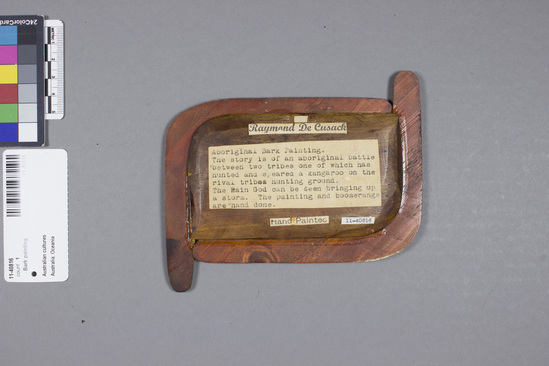 24ColorCard
Raymond De Cusack
Aboriginal Bark Painting.
The story is of an aboriginal battle
between two tribes one of which has
hunted and s eared a kangaroo on the
rival tribes hunting ground.
The Rain God can be deen bringing up
a storm. The painting and boomerangs
are hand done.
Hand Painted
11-40816
11-40816
COUNT 1
Bark painting
Australian cultures
Australia: Oceania